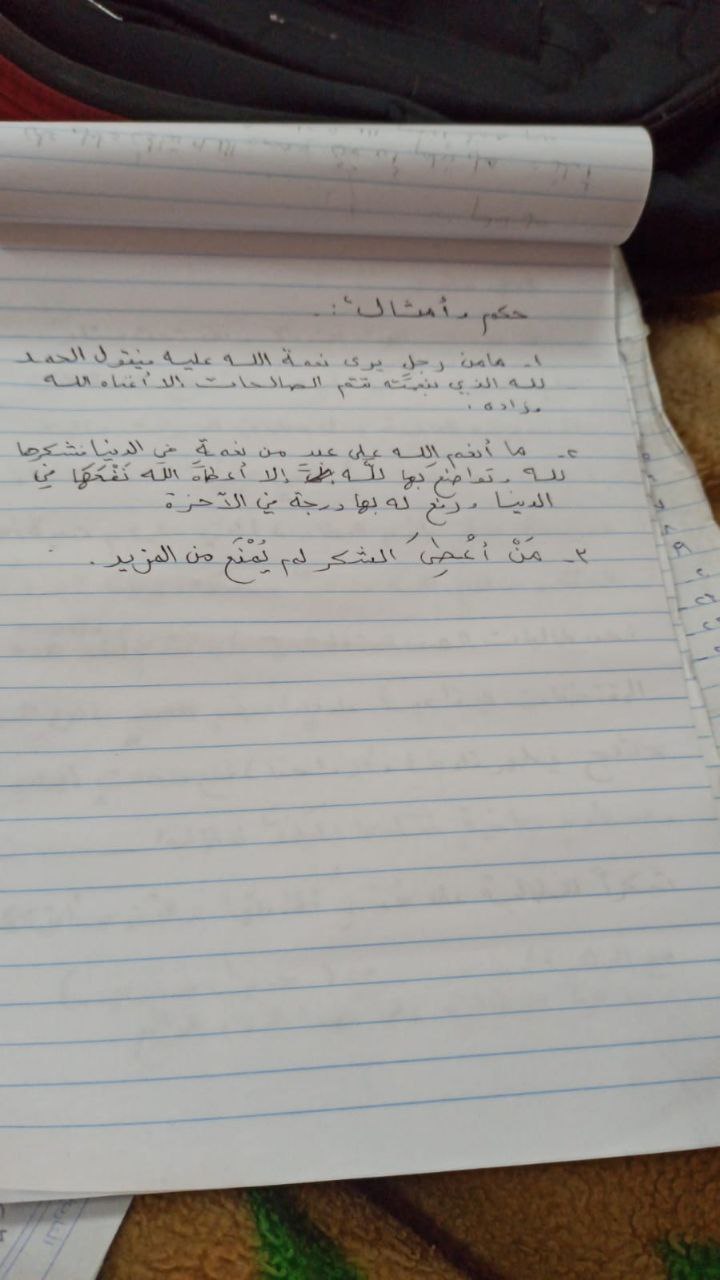 حكم وأمثال :.
١- مامن رجل يرى نعمة الله عليه فيقول الحمد
لله الذي بنعمته تتم الصالحات إلا أغناه الله
وزاده .
٢- ما أنعم الله على عبد من نعمة في الدنيا فشكرها
لله وتواضع بها للَّه إلا أعطاهُ اللَّه نَفْعَهَا في
الدنيا ورفع له بها درجة في الآخرة
٣- مَنْ أُعْطِيَ الشكر لم يُمْنَع من المزيد .